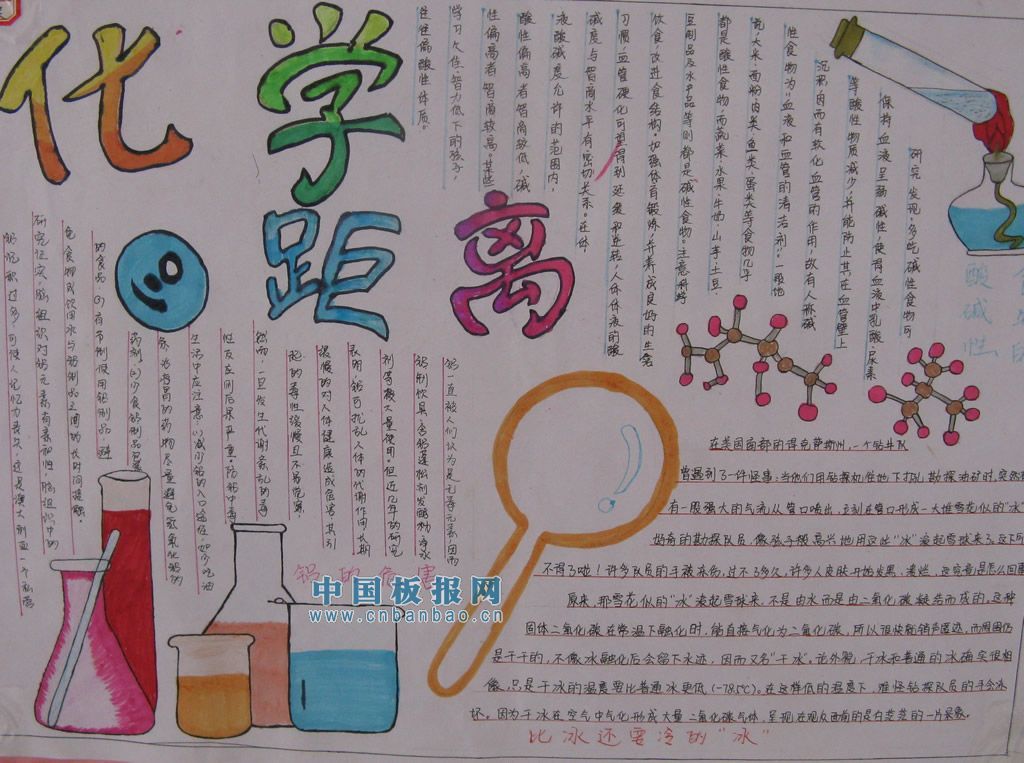 化学
距离
研究发现,多吃碱性食物可
保持血液呈弱碱性,使得血液中乳酸、尿素
等酸性物质减少,并能防止其在血管壁上
沉积,因而有软化血管的作用,故有人称碱
性食物为“血液和血管的清洁剂”。一般地
说,大米、面粉、肉类、鱼类、蛋类等食物几乎
都是酸性食物,而蔬菜、水果、牛奶、山芋、土豆、
豆制品及水产品等则都是碱性食物。注意科学
饮食,改进食结构。加强体育锻炼,并养成良好的生活
习惯,血管硬化可望得到延缓和逆转。人体体液的酸
碱度与智商水平有密切关系。在体
液酸碱度允许的范围内,
酸性偏高者智商较低,碱
性偏高者智商较高。某些
学习欠佳、智力低下的孩子,
往往偏酸性体质。
酸碱性
铝一直被人们认为是无毒元素,因而
铝制饮具、含铝蓬松剂发酵粉、净水
剂等被大量使用。但近几年的研究
表明,铝可扰乱人体的代谢作用,长期
缓慢的对人体健康造成危害,其引
起的毒性缓慢且不易觉察,
然而,一旦发生代谢紊乱的毒
性反应,则后果严重。防铝中毒,
生活中应注意:(1)减少铝的入口途径,如少吃油
的食品。(3)有节制使用铝制品,避
免食物或饮用水与铝制品之间的长时间接触。
研究证实,脑组织对铝元素有亲和性,脑组织中的
铝沉积过多,可使人记忆力丧失,
铝的危害
中国板报网
www.cnbanbao.cn
在美国南部的得克萨斯州,一个钻井队
曾遇到了一件怪事:当他们用钻探机在地下打孔勘探油矿时,突然
有一股强大的气流从管口喷出,立刻在管口形成一大堆雪花似的“冰
好奇的勘探队员,像孩子般高兴地用这些“冰”滚起雪球来了,这下可
不得了啦!许多队员的手被冻伤,过不了多久,许多人皮肤开始发黑、溃烂,这究竟是怎么回
原来,那雪花似的“冰”滚起雪球来,不是由水而是由二氧化碳凝结而成的,这种
固体二氧化碳在常温下融化时,能直接气化为二氧化碳,所以很快就销声匿迹,而周围仍
是干干的,不像冰融化后会留下水迹,因而又名“干冰”。论外貌,干冰和普通的冰确实很相
像,只是干冰的温度要比普通冰更低(-78.5℃)。在这样低的温度下,难怪钻探队员的手会冻
坏。因为干冰在空气中气化形成大量二氧化碳气体,呈现在观众面前的是白茫茫的一片景象。
比冰还要冷的“冰”